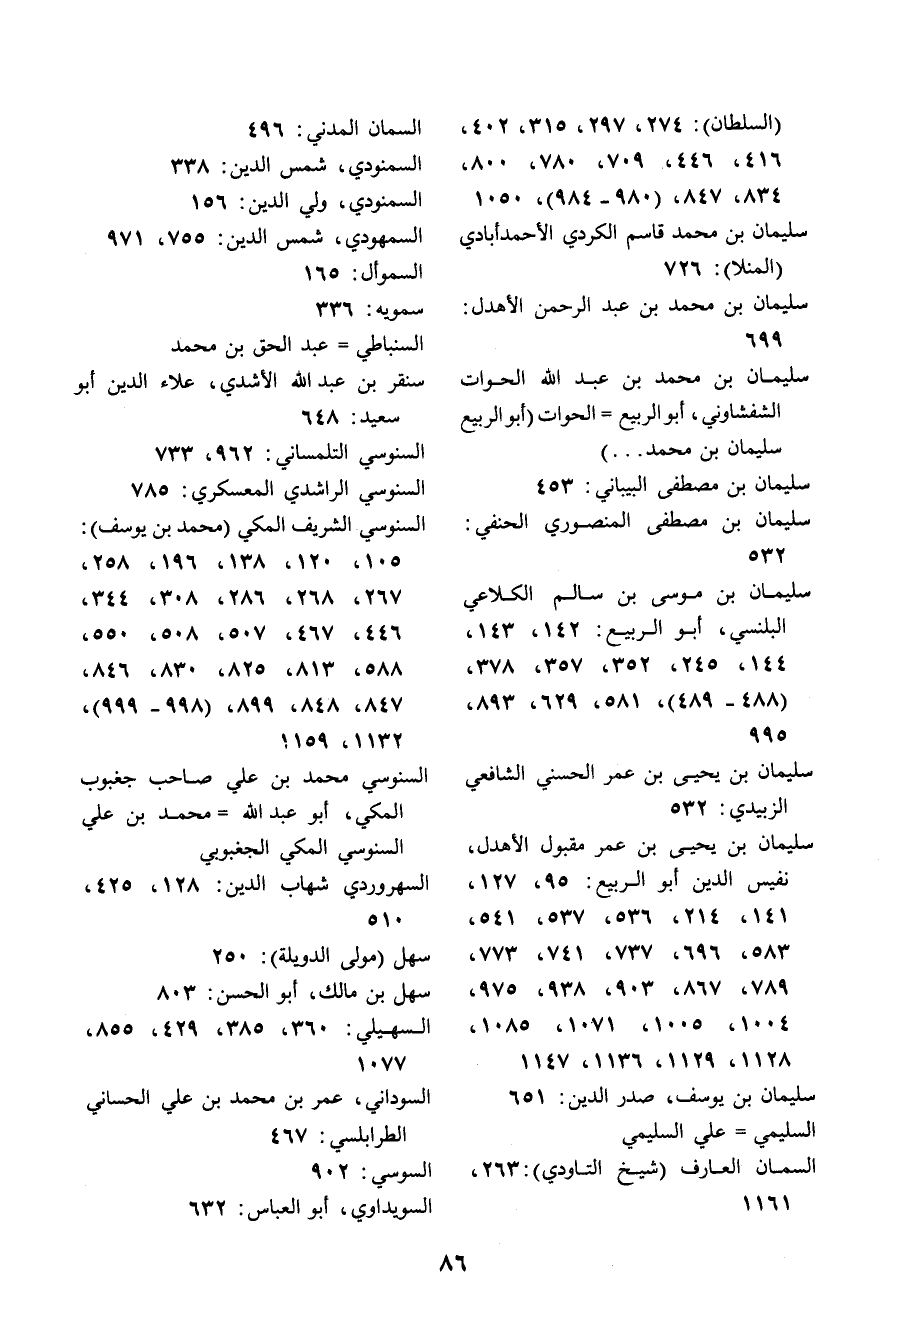 (السلطان): ٢٧٤، ٢٩٧، ٣١٥، ٤٠٢،
٤١٦، ٤٤٦، ٧٠٩، ٧٨٠، ٨٠٠،
٨٣٤، ٨٤٧، (٩٨٠ ـ ٩٨٤)، ١٠٥٠
سليمان بن محمد قاسم الكردي الأحمدأبادي
(المنلا): ٧٢٦
سليمان بن محمد بن عبد الرحمن الأهدل:
٦٩٩
سليمان بن محمد بن عبد الله الحوات
الشفشاوني، أبو الربيع = الحوات (أبو الربيع
سليمان بن محمد...)
سليمان بن مصطفى البيباني: ٤٥٣
سليمان بن مصطفى المنصوري الحنفي:
٥٣٢
سليمان بن موسى بن سالم الكلاعي
البلنسي، أبو الربيع: ١٤٢، ١٤٣،
١٤٤، ٢٤٥، ٣٥٢، ٣٥٧، ٣٧٨،
(٤٨٨ ـ ٤٨٩)، ٥٨١، ٦٢٩، ٨٩٣،
٩٩٥
سليمان بن يحيى بن عمر الحسني الشافعي
الزبيدي: ٥٣٢
سليمان بن يحيى بن عمر مقبول الأهدل،
نفيس الدين أبو الربيع: ٩٥، ١٢٧،
١٤١، ٢١٤، ٥٣٦، ٥٣٧، ٥٤١،
٥٨٣، ٦٩٦، ٧٣٧، ٧٤١، ٧٧٣،
٧٨٩، ٨٦٧، ٩٠٣، ٩٣٨، ٩٧٥،
١٠٠٤، ١٠٠٥، ١٠٧١، ١٠٨٥،
١١٢٨، ١١٢٩، ١١٣٦، ١١٤٧
سليمان بن يوسف، صدر الدين: ٦٥١
السليمي = علي السليمي
السمان العارف (شيخ التاودي): ٢٦٣،
١١٦١
السمان المدني: ٤٩٦
السمنودي، شمس الدين: ٣٣٨
السمنودي، ولي الدين: ١٥٦
السمهودي، شمس الدين: ٧٥٥، ٩٧١
السموأل: ١٦٥
سمويه: ٣٣٦
السنباطي = عبد الحق بن محمد
سنقر بن عبد الله الأشدي، علاء الدين أبو
سعيد: ٦٤٨
السنوسي التلمساني: ٩٦٢، ٧٣٣
السنوسي الراشدي المعسكري: ٧٨٥
السنوسي الشريف المكي (محمد بن يوسف):
١٠٥، ١٢٠، ١٣٨، ١٩٦، ٢٥٨،
٢٦٧، ٢٦٨، ٢٨٦، ٣٠٨، ٣٤٤،
٤٤٦، ٤٦٧، ٥٠٧، ٥٠٨، ٥٥٠،
٥٨٨، ٨١٣، ٨٢٥، ٨٣٠، ٨٤٦،
٨٤٧، ٨٤٨، ٨٩٩، (٩٩٨ ـ ٩٩٩)،
١١٣٢، ١١٥٩
السنوسي محمد بن علي صاحب جغبوب
المكي، أبو عبد الله = محمد بن علي
السنوسي المكي الجغبوبي
السهروردي شهاب الدين: ١٢٨، ٤٢٥،
٥١٠
سهل (مولى الدويلة): ٢٥٠
سهل بن مالك، أبو الحسن: ٨٠٣
السهيلي: ٣٦٠، ٣٨٥، ٤٢٩، ٨٥٥،
١٠٧٧
السوداني، عمر بن محمد بن علي الحساني
الطرابلسي: ٤٦٧
السوسي: ٩٠٢
السويداوي، أبو العباس: ٦٣٢
٨٦